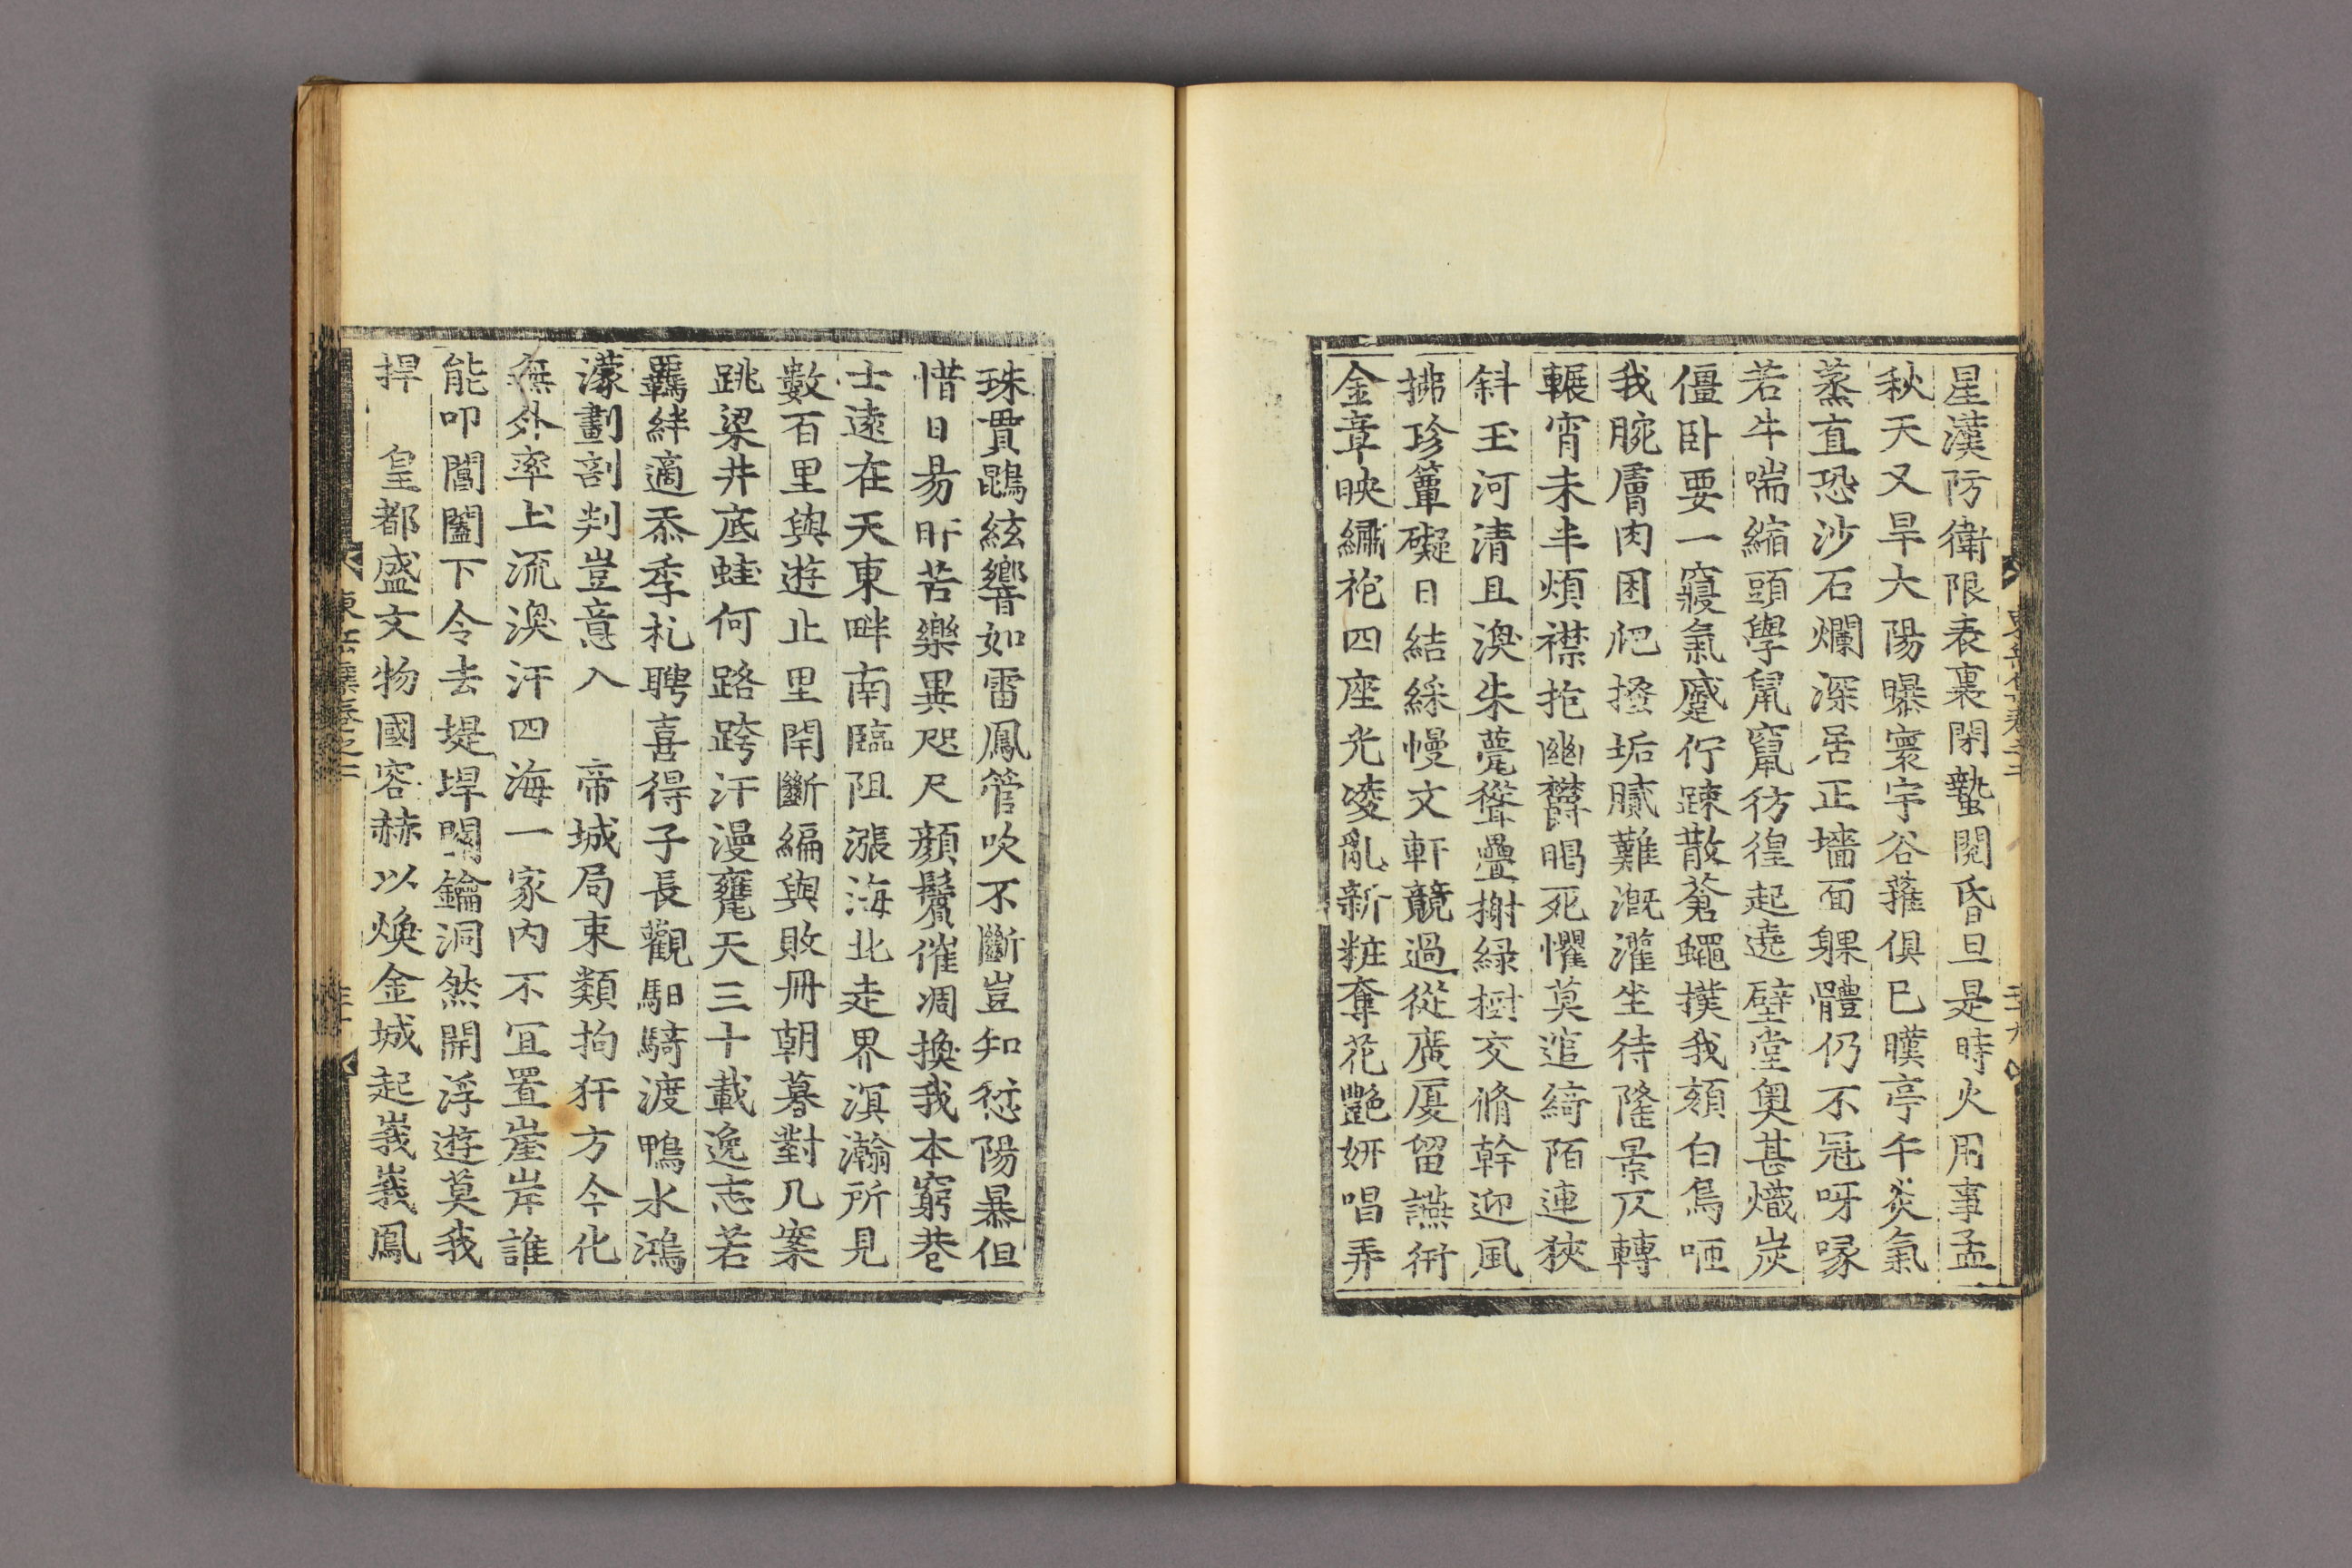 星漢防衛限表裏閉蟄閱昏旦是時火用事孟
秋天又旱大陽曝寰宇谷蓷俱已暵亭午炎氣
蒸直恐沙石爛深居正墻面躶體仍不冠呀喙
若牛喘縮頭學鼠竄彷徨起遶壁堂奧甚熾炭
僵卧要一寢氣蹙佇踈散蒼蠅撲我頦白鳥咂
我腕膚肉困爬搔垢膩難漑灌坐待隆景仄轉
輾宵未半煩襟抱幽欝暍死懼莫逭綺陌連狹
斜玉河清且渙朱甍聳疊榭綠樹交脩幹迎風
拂珍簟礙日結綵幔文軒競過從廣厦留讌衎
金章映繡袍四座光凌亂新粧奪花艷妍唱弄
珠貫鵾絃響如雷鳳管吹不斷豈知愆陽暴但
惜日易旰苦樂異咫尺顔鬢催凋換我本窮巷
士遠在天東畔南臨阻漲海北走界溟瀚所見
數百里與遊止里閈斷編與敗冊朝暮對几案
跳梁井底蛙何路跨汗漫甕天三十載逸志若
羈絆適忝季札聘喜得子長觀馹騎渡鴨水鴻
濛劃剖判豈意入　帝城局束類拘犴方今化
無外率土流渙汗四海一家內不宜置崖岸誰
能叩閶闔下令去堤垾關鑰洞然開浮遊莫我
捍　皇都盛文物國容赫以煥金城起峩峩鳳